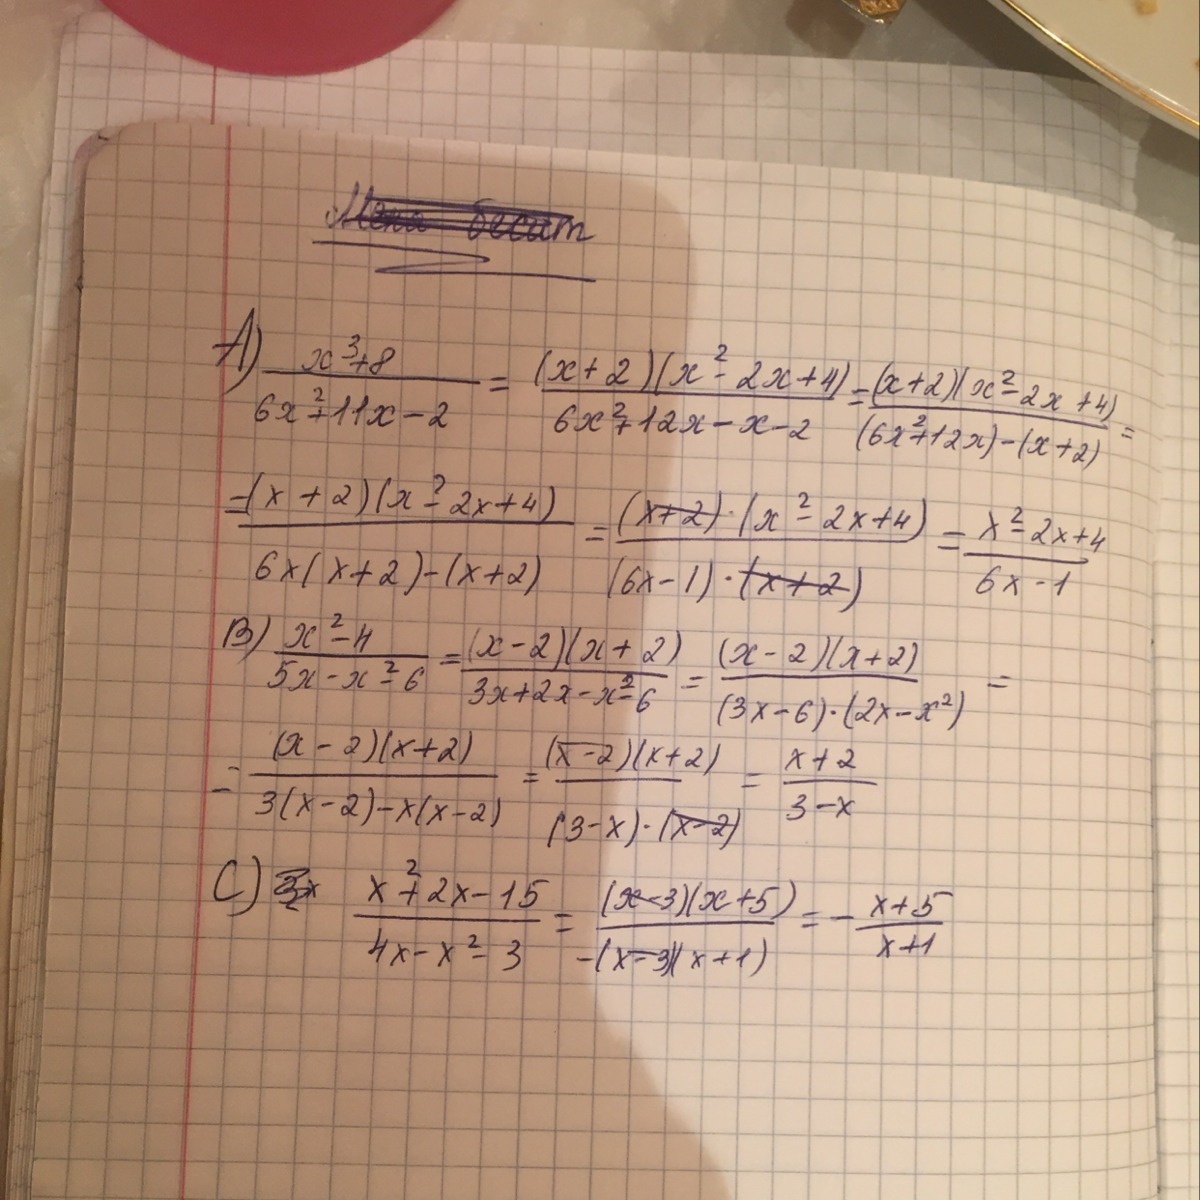 A) x³+8 / 6x²+11x-2 = (x+2)(x²-2x+4) / 6x²+12x-x-2 = (x+2)(x²-2x+4) / (6x²+12x)-(x+2) =
= (x+2)(x²-2x+4) / 6x(x+2)-(x+2) = (x+2)·(x²-2x+4) / (6x-1)·(x+2) = x²-2x+4 / 6x-1
B) x²-4 / 5x-x²-6 = (x-2)(x+2) / 3x+2x-x²-6 = (x-2)(x+2) / (3x-6)·(2x-x²) =
= (x-2)(x+2) / 3(x-2)-x(x-2) = (x-2)(x+2) / (3-x)·(x-2) = x+2 / 3-x
C) x²+2x-15 / 4x-x²-3 = (x-3)(x+5) / -(x-3)(x+1) = - x+5 / x+1